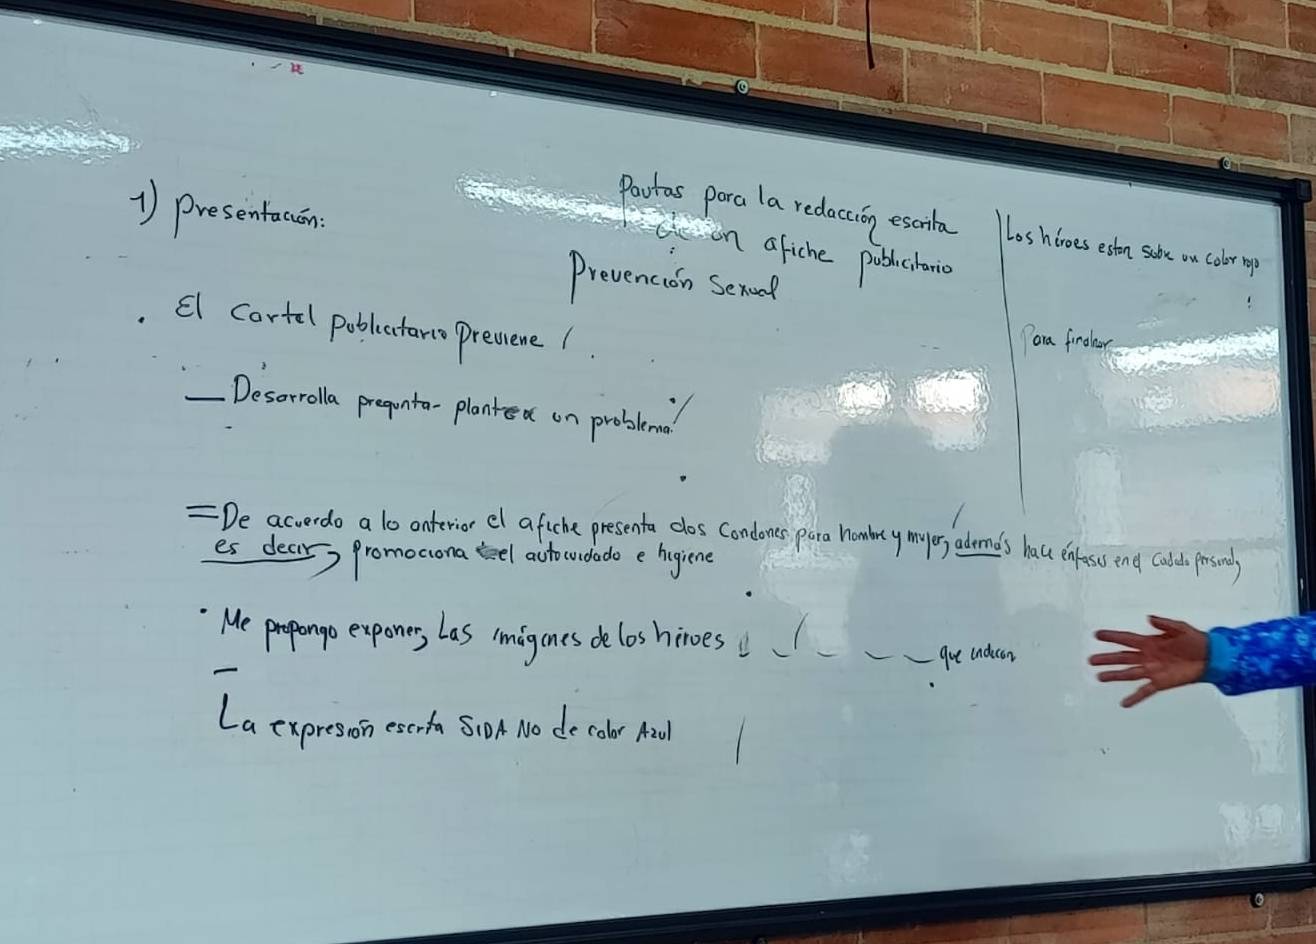 Pautas para la redacción escrita
de un afiche publicitario
Prevención Sexual
1) Presentación:
. El Cartel Publicitario Previene /.
— Desarrolla pregunta- plantea un problema/
= De acuerdo a lo anterior el afiche presenta dos Condones para hombre y mujer, además hace énfasis en el Cuidado personal,
es decir, promociona el autocuidado e higiene
. Me propongo exponer, Las imágenes de los héroes / que indican
— La expresión escrita SIDA NO de color Azul /
Los héroes estan sobre un color rojo
Para finalizar